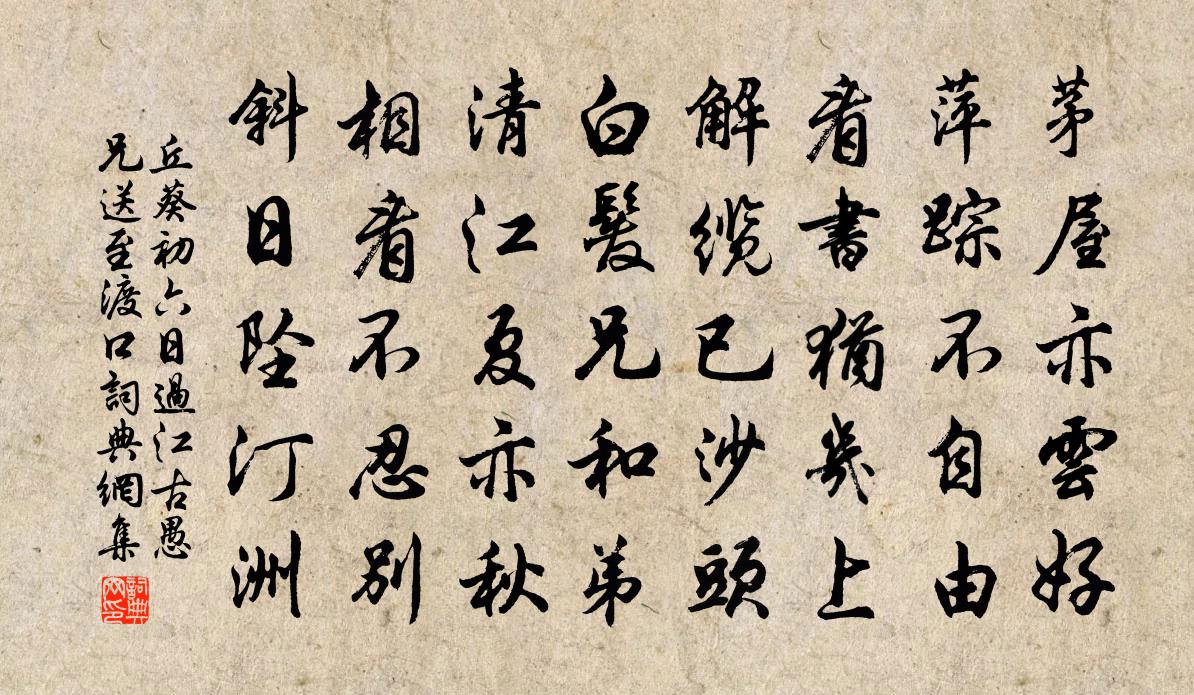 茅屋亦雲好
萍踪不自由
看書猶幾上
解纜已沙頭
白髮兄和弟
清江夏亦秋
相看不忍別
斜日墜汀洲
丘葵初六日過江古愚
兄送至渡口詞典網集
詞典網印